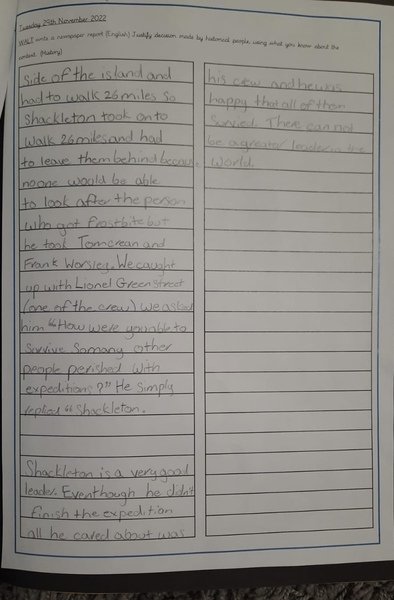 Tuesday 29th November 2022
WALT write a newspaper report (English) Justify decision made by historical people, using what you know about the
context. (History)
Side of the island and
had to walk 26 miles so
Shackleton took onto
walk 26 miles and had
to leave them behind because
no one would be able
to look after the person
who got frostbite but
he took Tomcrean and
Frank Worsley. We caught
up with Lionel Green street
(one of the crew) we asked
him "How were you able to
survive So many other
people perished with
expeditions?" He simply
replied "Shackleton.
Shackleton is a very good
leader. Eventhough he didn't
finish the expedition
all he cared about was
his crew and he was
happy that all of them
Survied. There can not
be a greater leader in the
world.